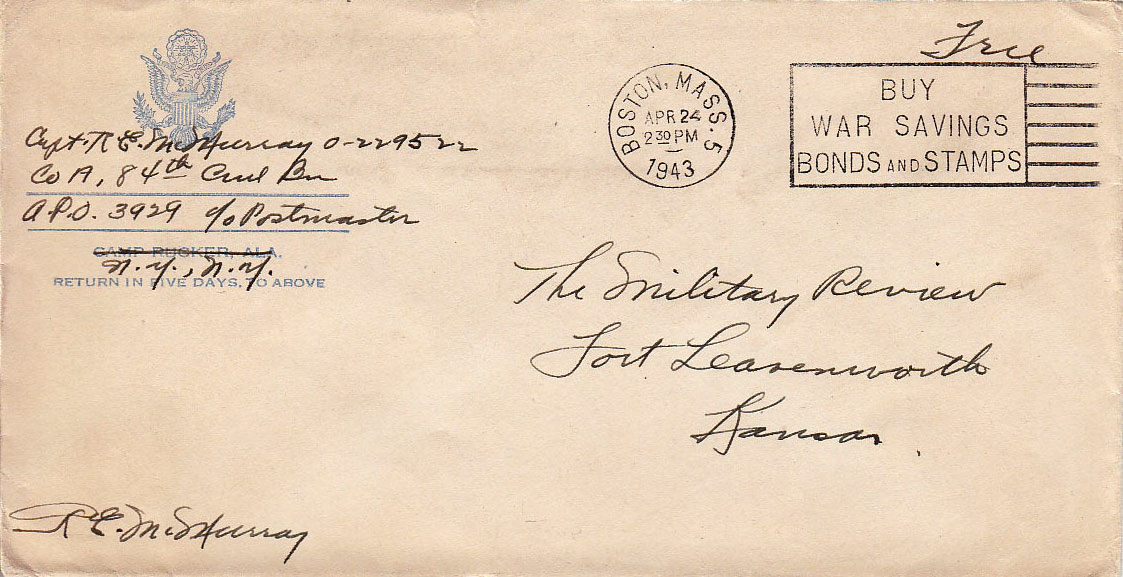 Free
Capt. R. E. McMurray O-229522
Co A, 84th Cml Bn
A.P.O. 3929 c/o Postmaster
CAMP RUCKER, ALA.
N.Y., N.Y.
RETURN IN FIVE DAYS, TO ABOVE
BOSTON, MASS. 5
APR 24
2 30 PM
1943
BUY
WAR SAVINGS
BONDS AND STAMPS
The Military Review
Fort Leavenworth
Kansas.
R E. McMurray